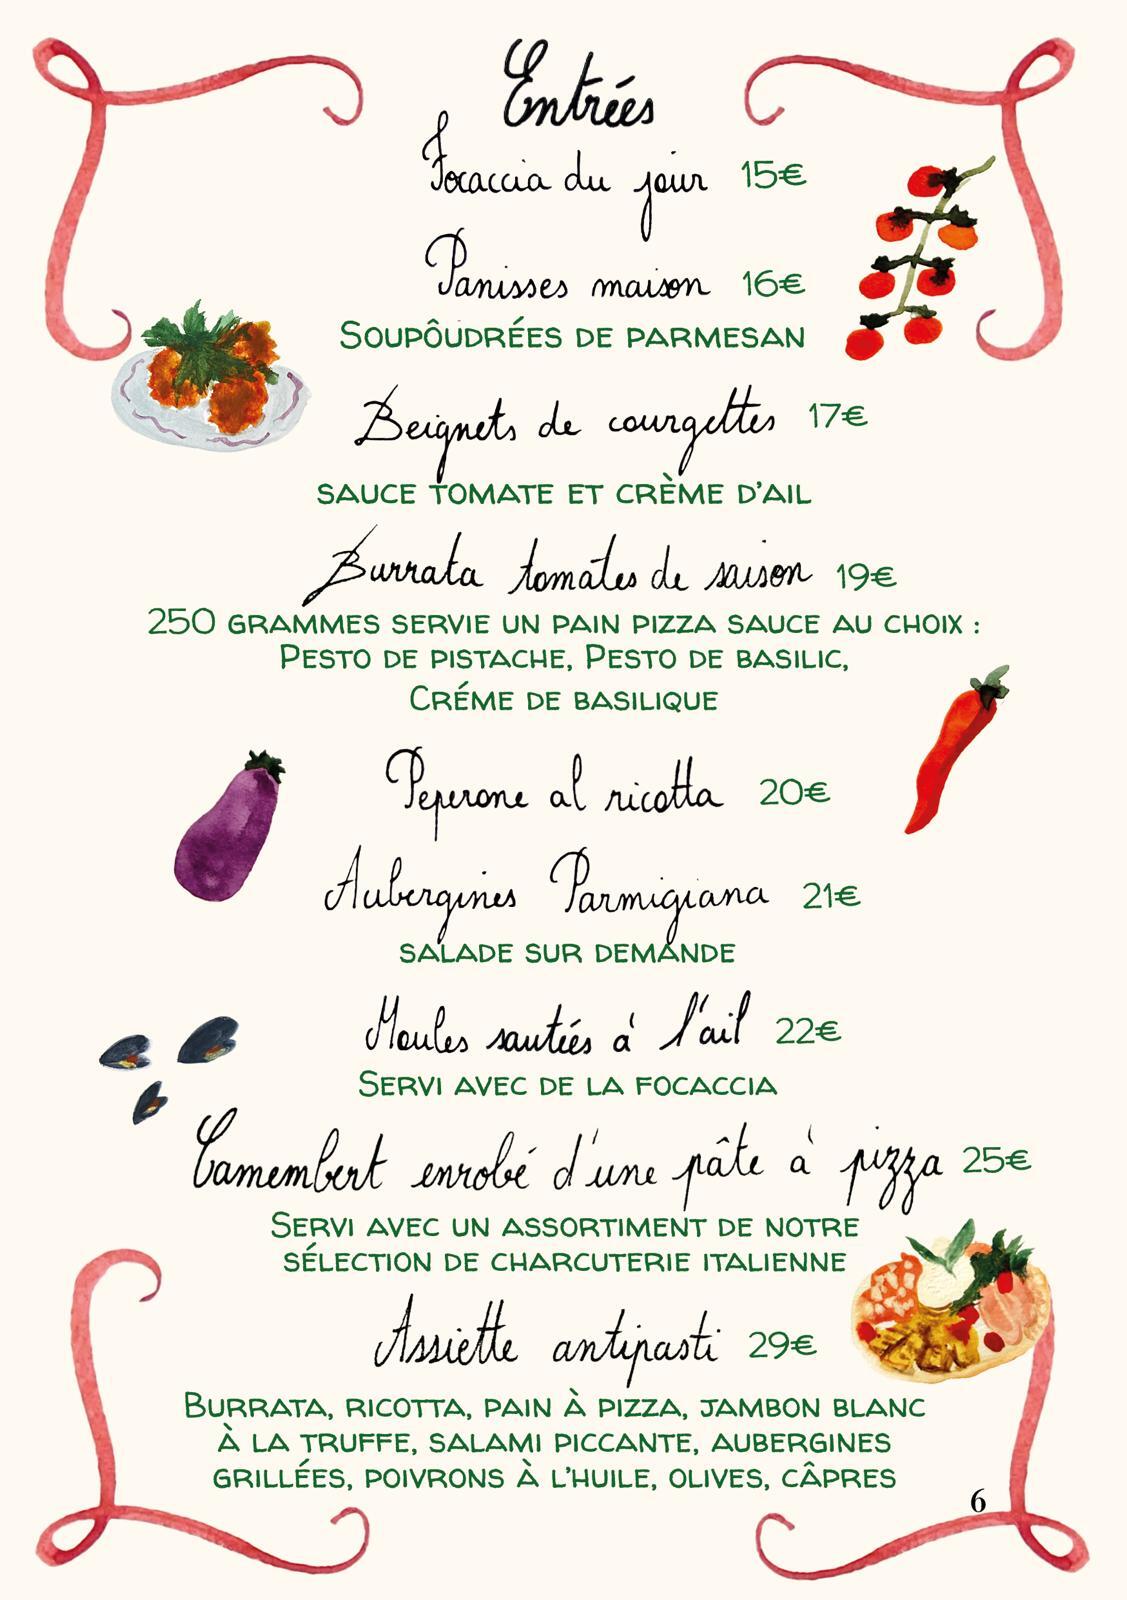 Entrées
Focaccia du jour 15€
Panisses maison 16€
Soupôudrées de parmesan
Beignets de courgettes 17€
sauce tomate et crème d'ail
Burrata tomates de saison 19€
250 grammes servie un pain pizza sauce au choix :
Pesto de pistache, Pesto de basilic,
Créme de basilique
Peperone al ricotta 20€
Aubergines Parmigiana 21€
salade sur demande
Moules sautées à l'ail 22€
Servi avec de la focaccia
Camembert enrobé d'une pâte à pizza 25€
Servi avec un assortiment de notre
sélection de charcuterie italienne
Assiette antipasti 29€
Burrata, ricotta, pain à pizza, jambon blanc
à la truffe, salami piccante, aubergines
grillées, poivrons à l'huile, olives, câpres
6